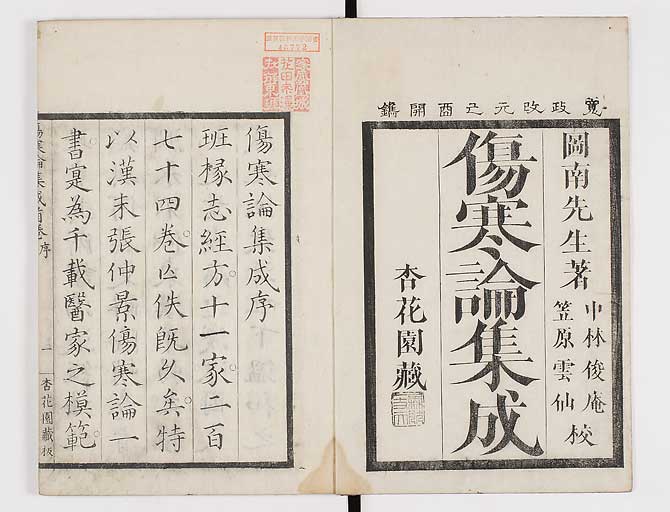 寛政改元己酉開鐫
圖南先生著
中林俊庵
笠原雲仙
校
傷寒論集成
杏花園藏
傷寒論集成序
班椽志經方十一家二百
七十四卷亡佚既久矣特
以漢末張仲景傷寒論一
書寔為千載醫家之模範
傷寒論集成首卷 序
一
杏花園藏板